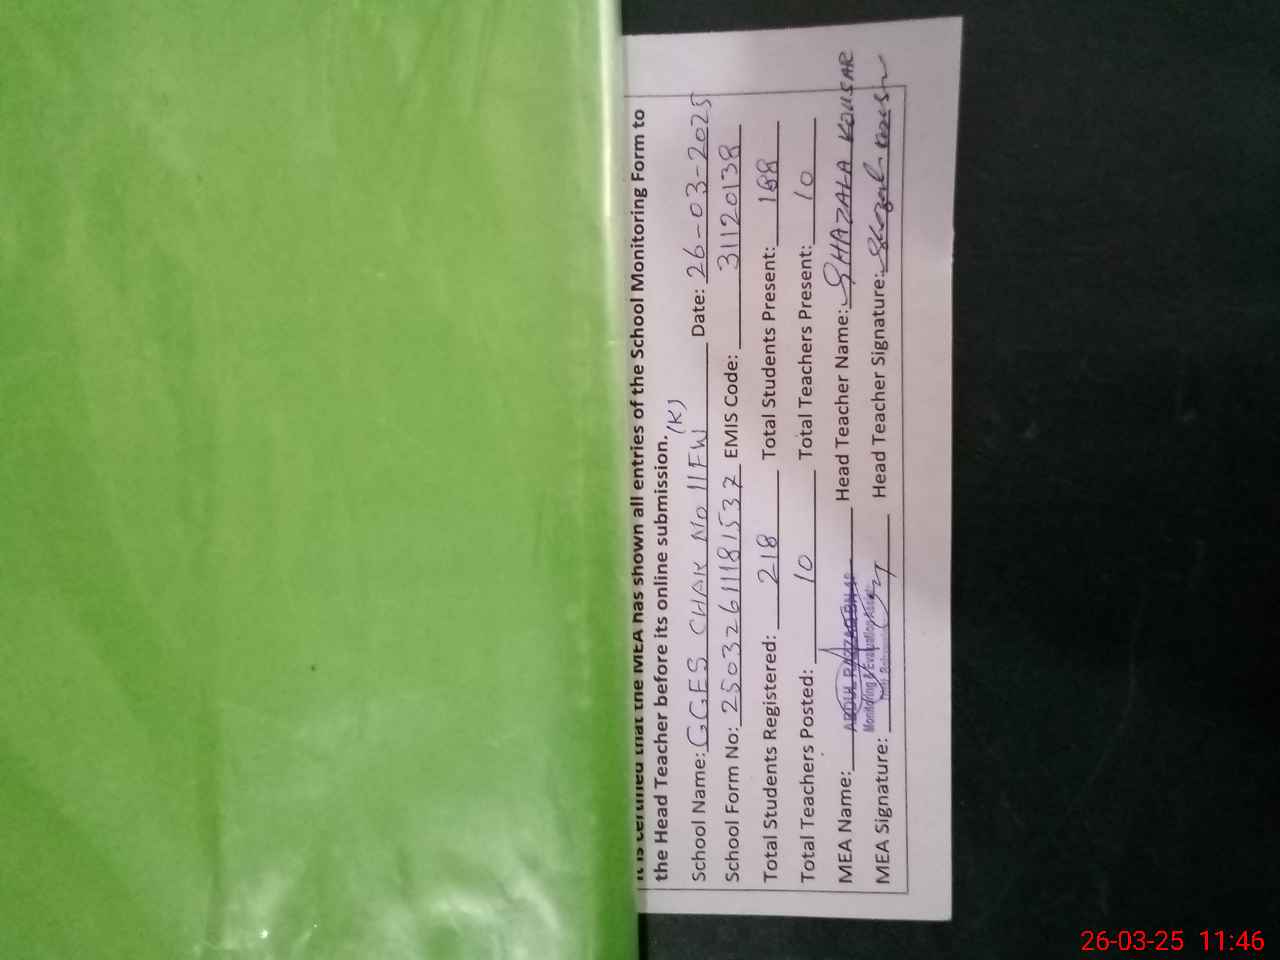 It is certified that the MEA has shown all entries of the School Monitoring Form to
the Head Teacher before its online submission.
School Name: GGES CHAK No 11FW (K) Date: 26-03-2025
School Form No: 250326111181537 EMIS Code: 31120138
Total Students Registered: 218 Total Students Present: 188
Total Teachers Posted: 10 Total Teachers Present: 10
MEA Name: ABDUL RAZZAQ Head Teacher Name: GHAZALA KOUSAR
Monitoring & Evaluation Assistant
MEA Signature: Head Teacher Signature:
26-03-25 11:46